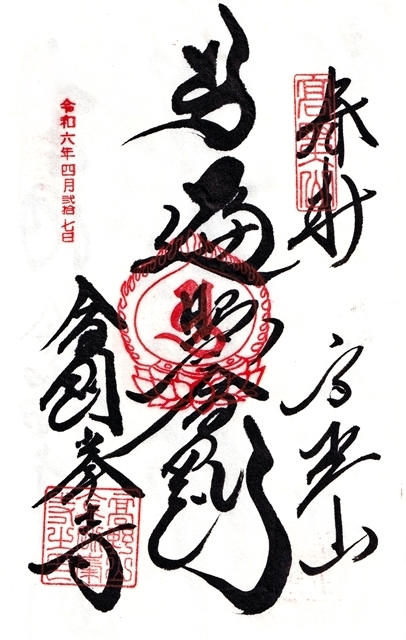 奉拝
高野山
高野山
遍照金剛
令和六年四月弐拾七日
金剛峯寺